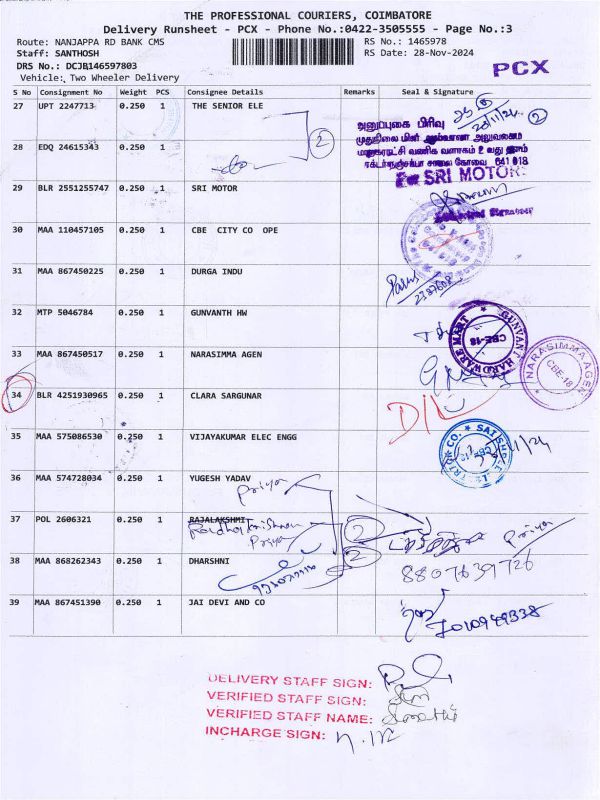 THE PROFESSIONAL COURIERS, COIMBATORE
Delivery Runsheet - PCX - Phone No.:0422-3505555 - Page No.:3
Route: NANJAPPA RD BANK CMS RS No.: 1465978
Staff: SANTHOSH RS Date: 28-Nov-2024
DRS No.: DCJB146597803 PCX
Vehicle: Two Wheeler Delivery
S No Consignment No Weight PCS Consignee Details Remarks Seal & Signature
27 UPT 2247713 0.250 1 THE SENIOR ELE
28/11/24 2
அனுப்புகை பிரிவு
28 EDQ 24615343 0.250 1 2
மாநகராட்சி வணிக வளாகம் 2 வது தளம்
641 018
For SRI MOTOR
29 BLR 2551255747 0.250 1 SRI MOTOR
30 MAA 110457105 0.250 1 CBE CITY CO OPE
31 MAA 867450225 0.250 1 DURGA INDU
32 MTP 5046784 0.250 1 GUNVANTH HW
GUNVANT HARDWARE MART CBE-18
33 MAA 867450517 0.250 1 NARASIMMA AGEN
NARASIMMA AGEN CBE-18
34 BLR 4251930965 0.250 1 CLARA SARGUNAR
35 MAA 575086530 0.250 1 VIJAYAKUMAR ELEC ENGG
36 MAA 574728034 0.250 1 YUGESH YADAV
Priya
37 POL 2606321 0.250 1 RAJALAKSHMI 2
Priya Priya
38 MAA 868262343 0.250 1 DHARSHNI 2 8807639726
39 MAA 867451390 0.250 1 JAI DEVI AND CO
7010949338
DELIVERY STAFF SIGN:
VERIFIED STAFF SIGN:
VERIFIED STAFF NAME:
INCHARGE SIGN: